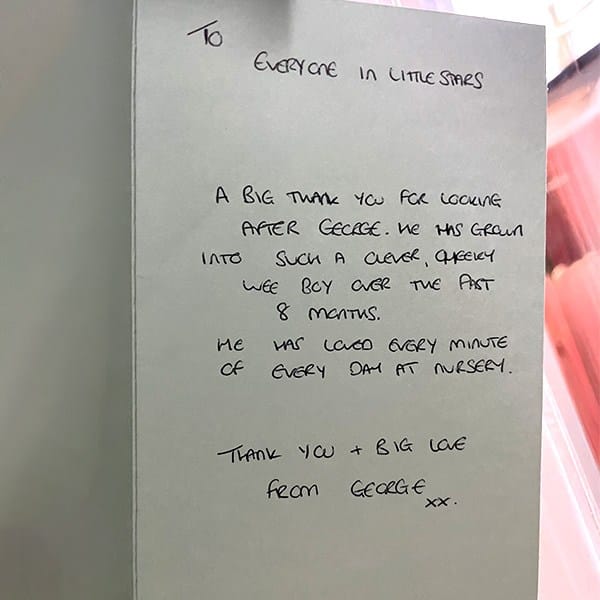 To
EVERYONE IN LITTLE STARS
A BIG THANK YOU FOR LOOKING
AFTER GEORGE. HE HAS GROWN
INTO SUCH A CLEVER, CHEEKY
WEE BOY OVER THE PAST
8 MONTHS.
HE HAS LOVED EVERY MINUTE
OF EVERY DAY AT NURSERY.
THANK YOU + BIG LOVE
FROM GEORGE xx.